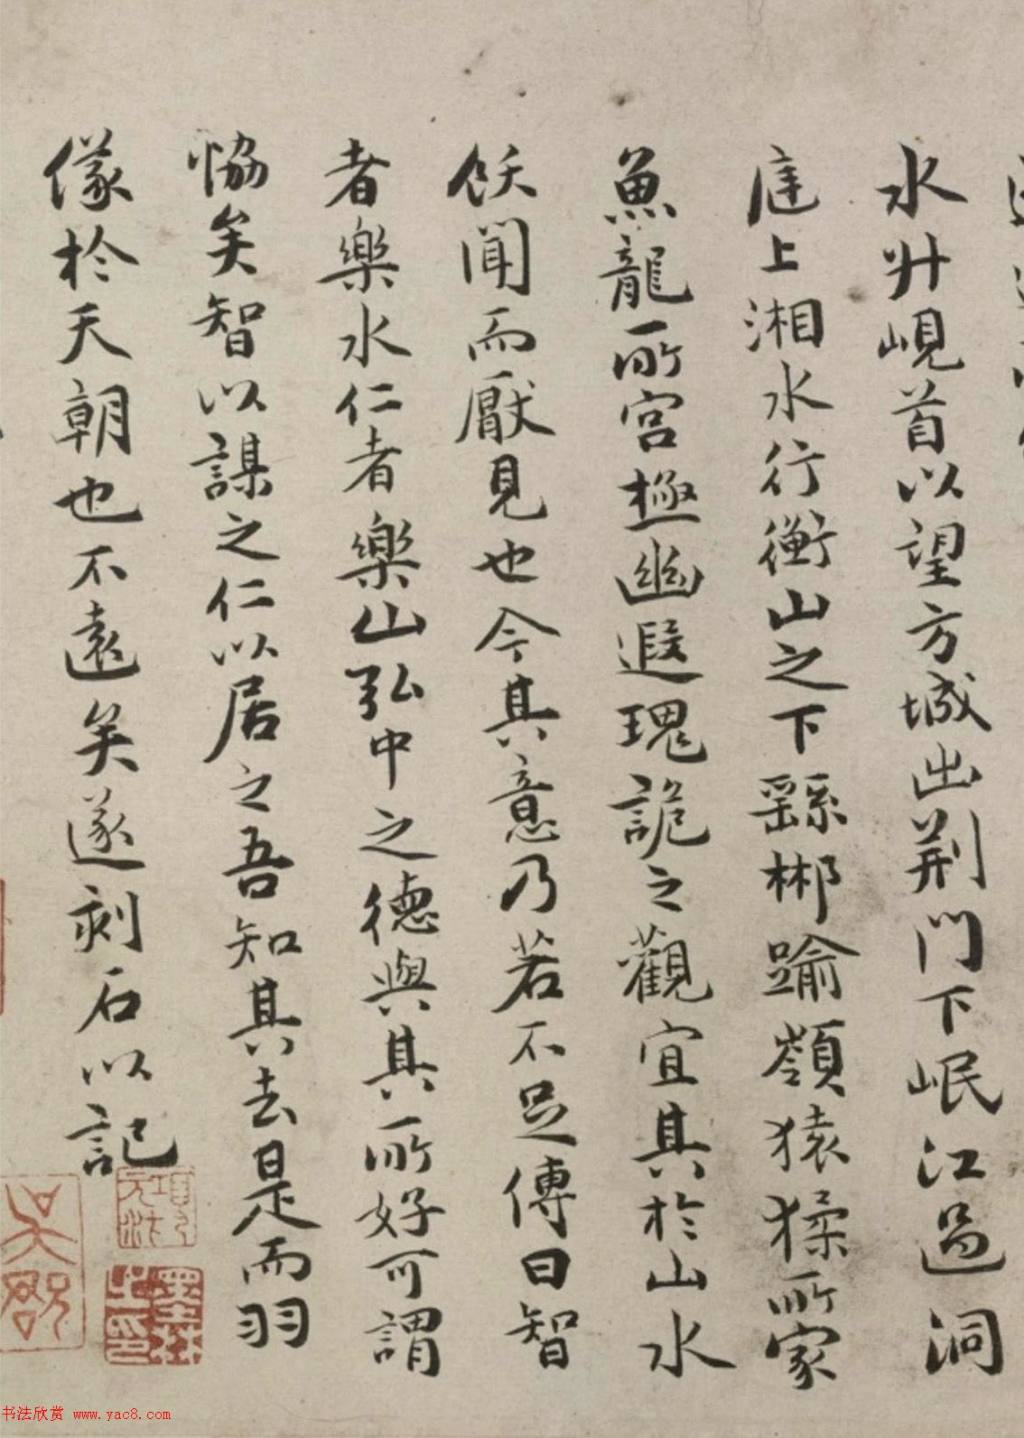 水升峴首以望方城出荆門下岷江過洞
庭上湘水行衡山之下繇郴踰嶺猿猱所家
魚龍所宮極幽遐瑰詭之觀宜其於山水
飫聞而厭見也今其意乃若不足傳曰智
者樂水仁者樂山弘中之德與其所好可謂
恊矣智以謀之仁以居之吾知其去是而羽
儀於天朝也不遠矣遂刻石以記
項元汴
墨林之印
吳郡
书法欣赏 www.yac8.com